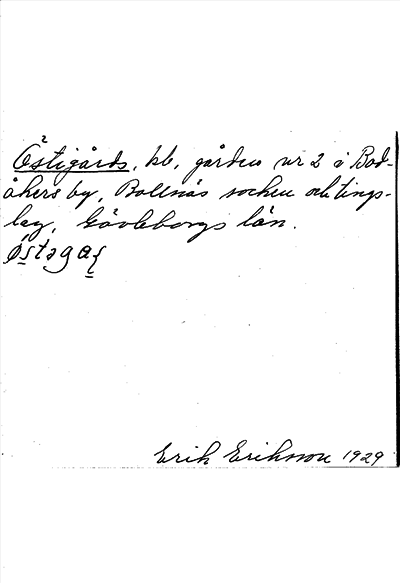 Östigårds, kb, gården nr 2 i Bod-
åkers by, Bollnäs socken och tings-
lag, Gävleborgs län.
östəga
Erik Eriksson 1929